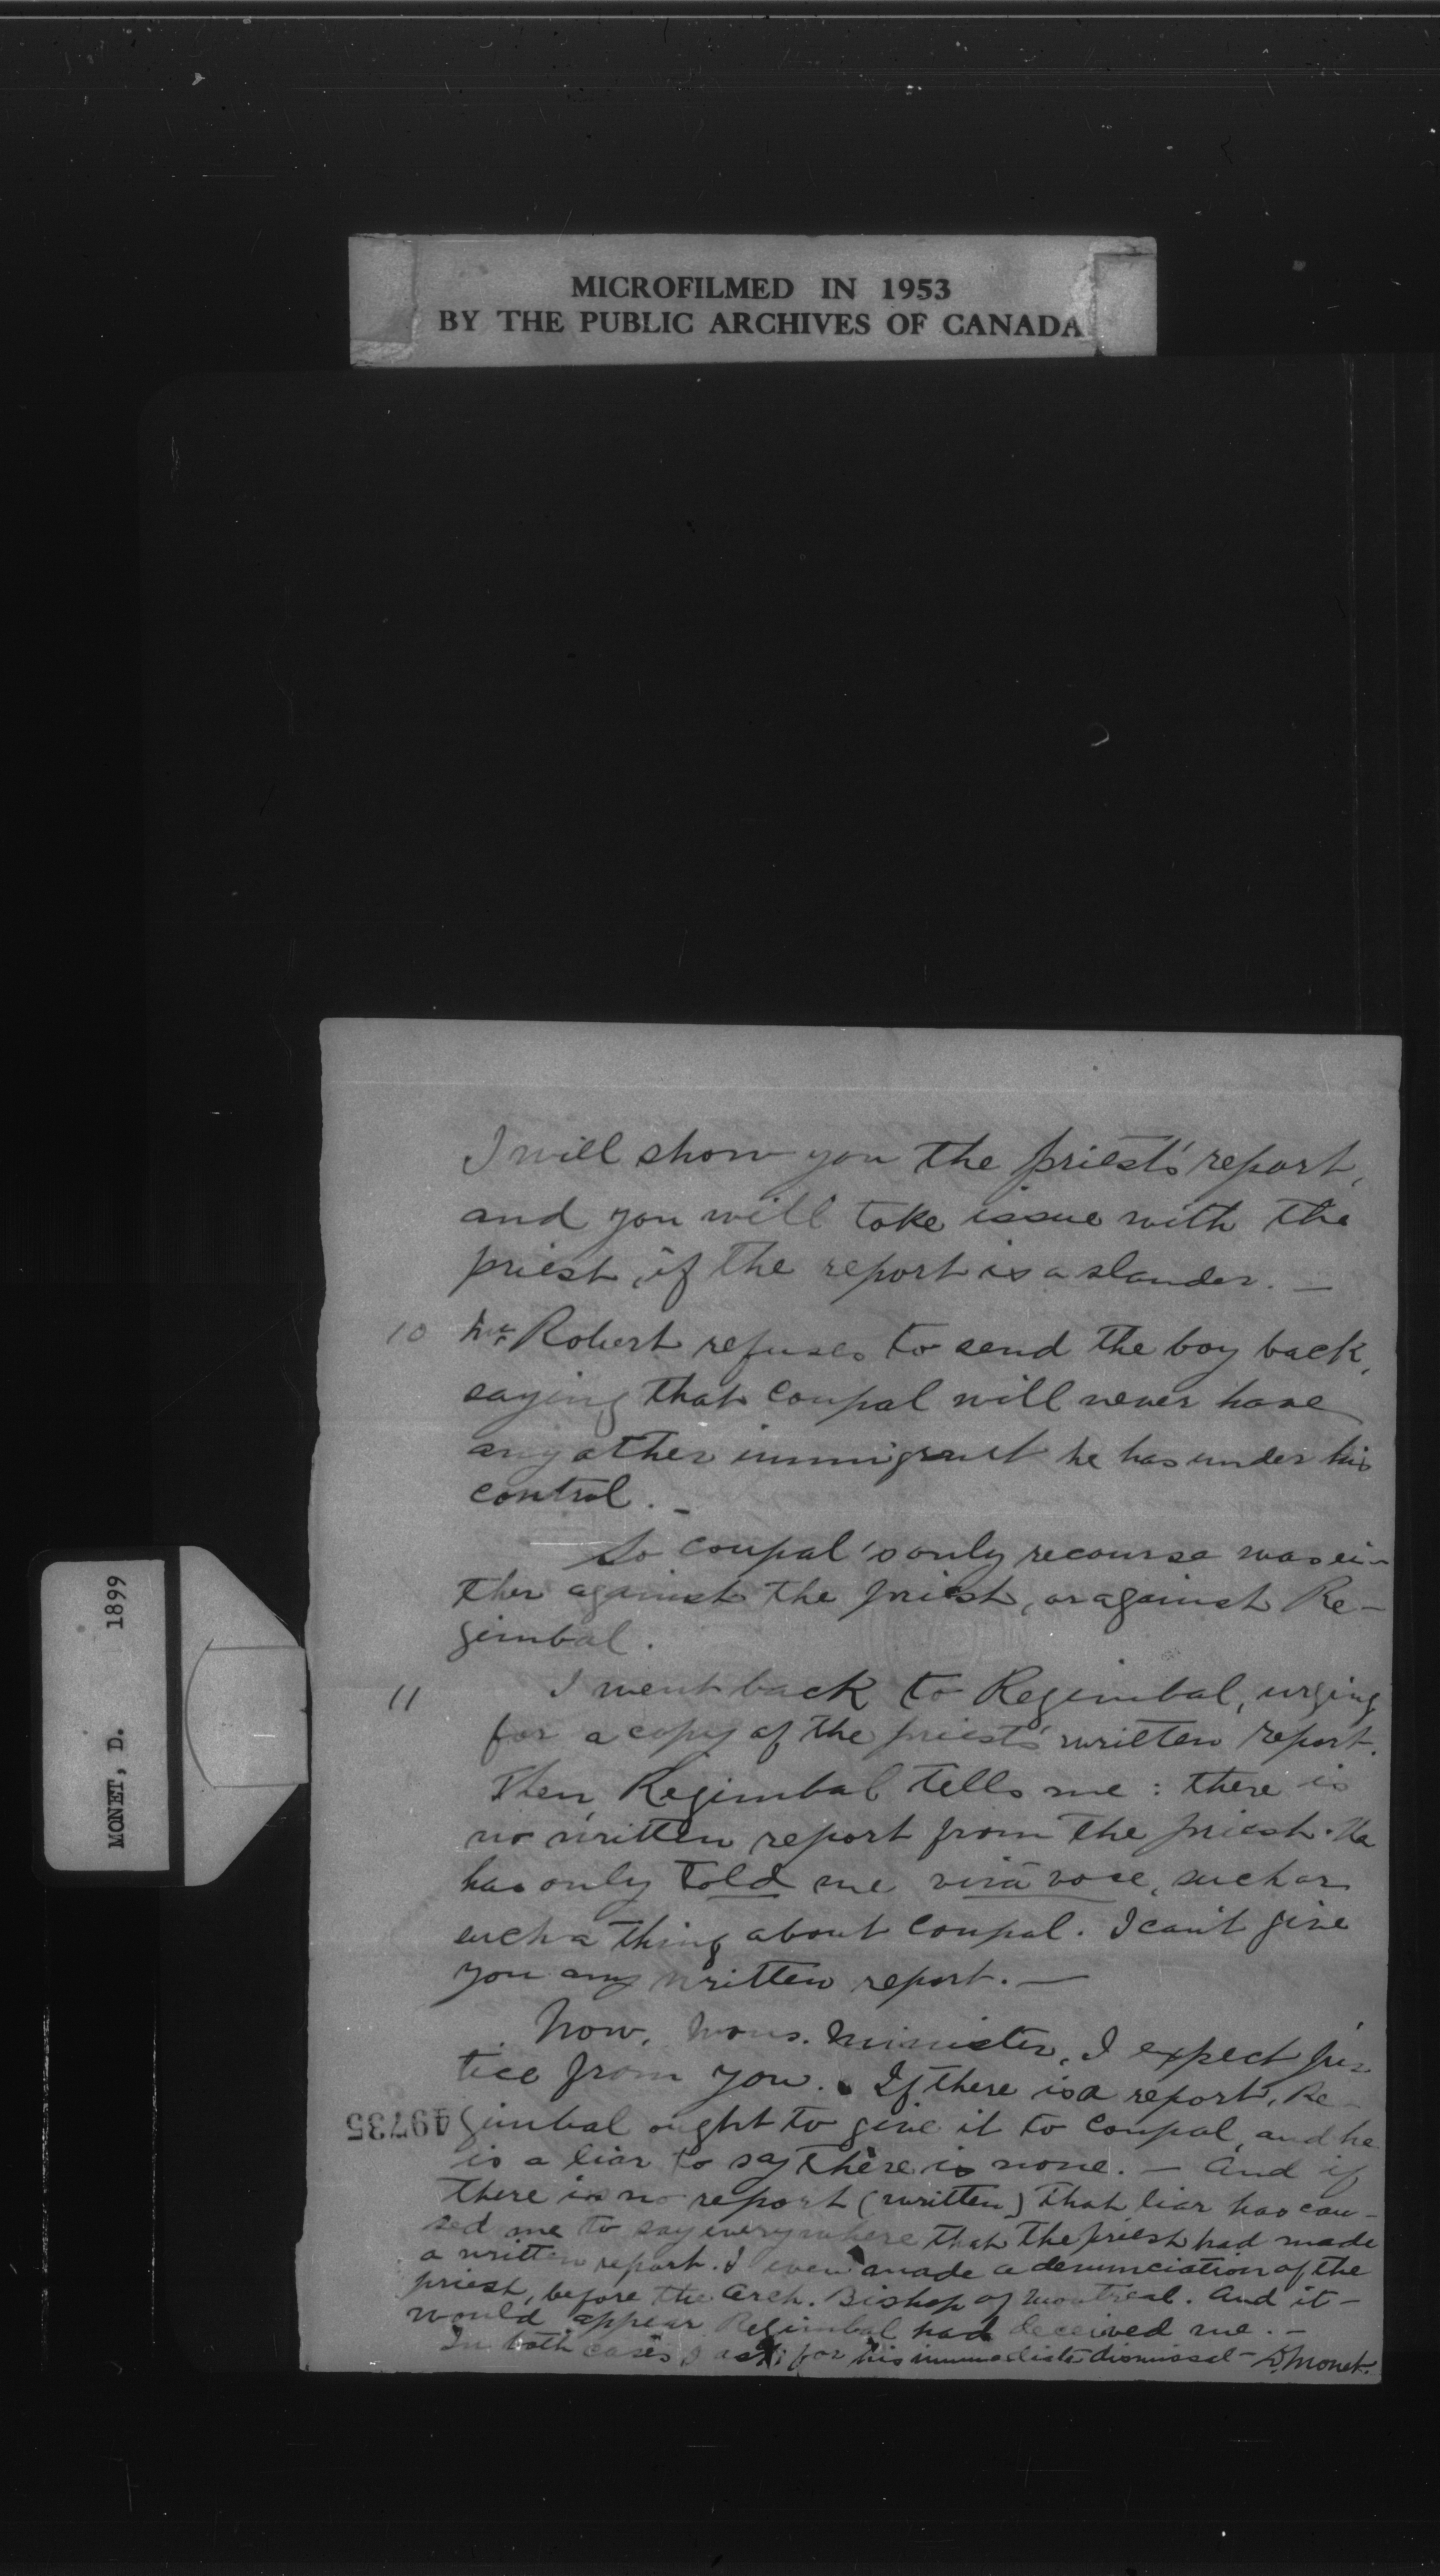 MICROFILMED IN 1953
BY THE PUBLIC ARCHIVES OF CANADA
I will show you the priest's report,
and you will take issue with the
priest, if the report is a slander. —
10 Mr. Robert refuses to send the boy back,
saying that Coupal will never have
any other immigrant he has under his
control. —
So Coupal's only recourse was ei-
ther against the priest, or against Re-
gimbal.
11 I went back to Regimbal, urging
for a copy of the priest's written report.
Then, Regimbal tells me : there is
no written report from the priest. He
has only told me viva voce, such or
such a thing about Coupal. I can't give
you any written report. —
Now, Mons. Minister, I expect jus-
tice from you. If there is a report, Re-
gimbal ought to give it to Coupal, and he
is a liar to say there is none. — And if
there is no report (written) that liar has cau-
sed me to say everywhere that the priest had made
a written report. I even made a denunciation of the
priest, before the Arch. Bishop of Montreal. And it
would appear Regimbal had deceived me. —
In both cases, I ask for his immediate dismissal — D. Monet.
49735
MONET, D. 1899